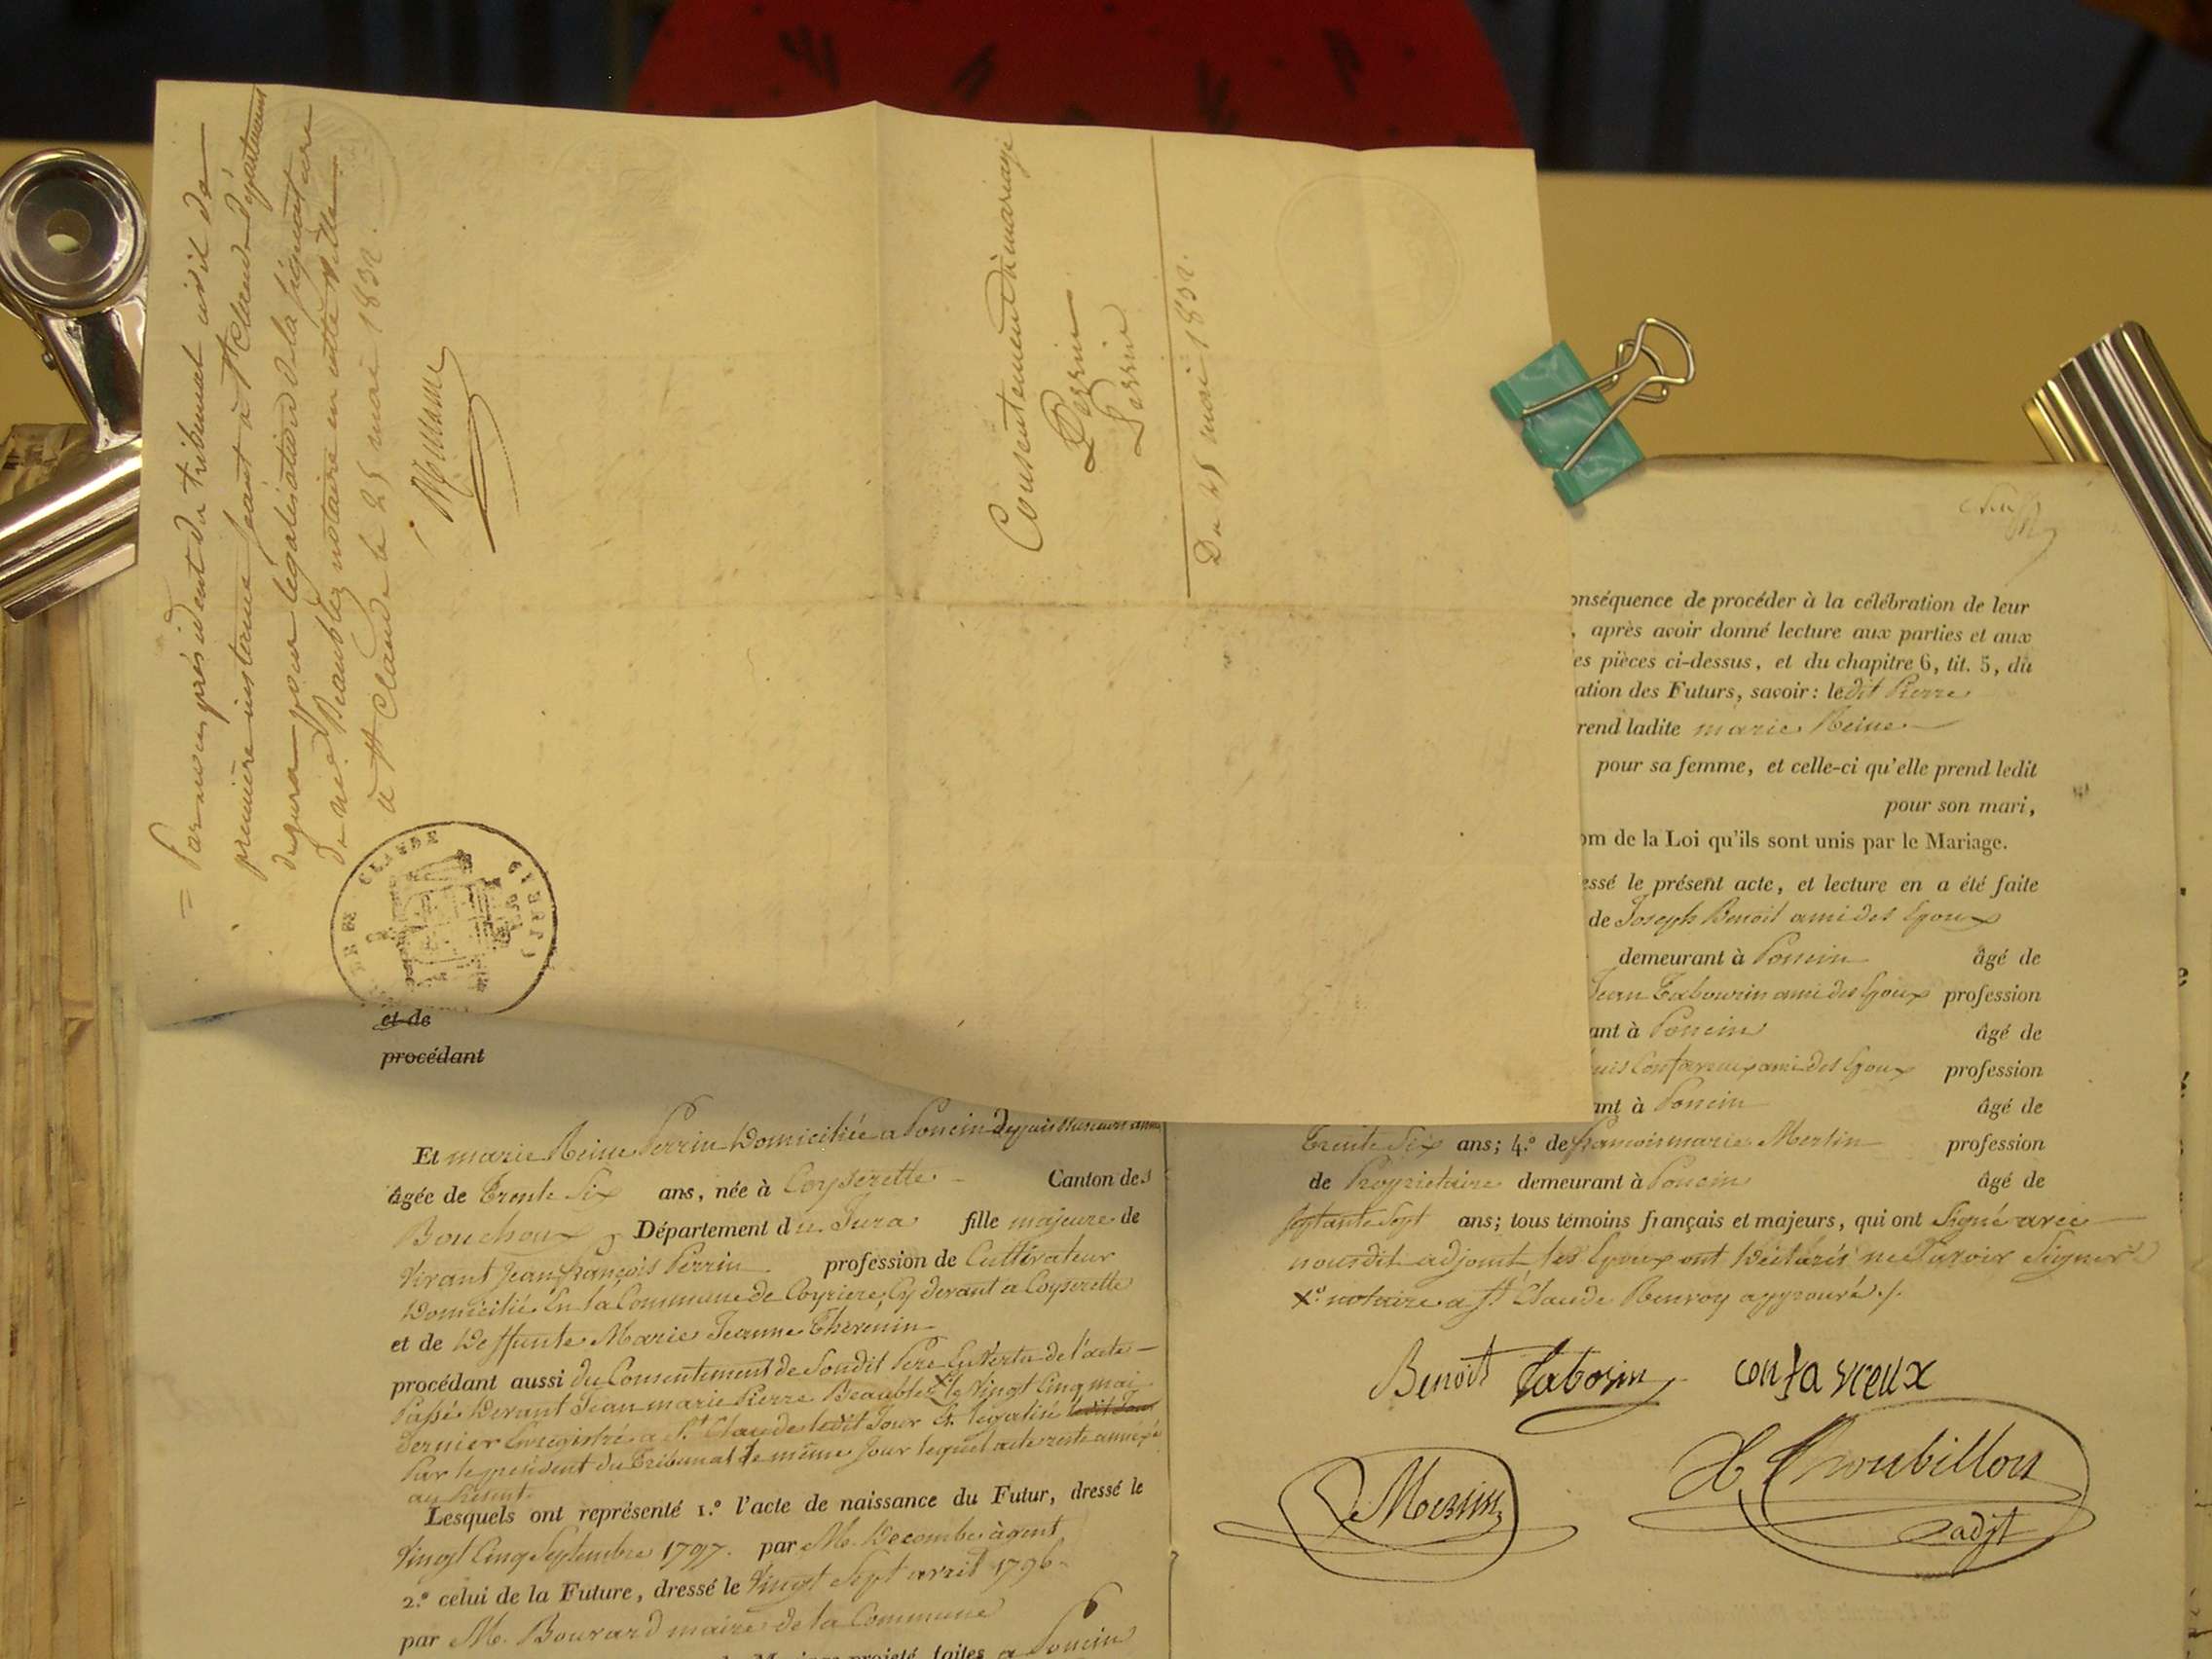 = Par nous président du tribunal civil de
première instance séant à St Claude département
du jura pour légalisation de la signature
de me. Beaublez notaire en cette ville.
à St Claude le 25 mai 1832.
Consentement à mariage
Perrin
Perrin
Du 25 mai 1832.
CLAUDE
et de
procédant
Et marie Reine Perrin domiciliée a Poncin depuis plusieurs
âgée de Trente Six ans, née à Coyserette Canton des
Bouchoux Département du Jura fille majeure de
vivant Jean françois Perrin profession de Cultivateur
domicilié En la Commune de Coyriere, Cy devant a Coyserette
et de deffunte Marie Jeanne Thevenin
procédant aussi du Consentement de Sondit Pere En Vertu de l'acte
Passé devant Jean marie Pierre Beaublez x le Vingt Cinq mai
dernier Enregistré a St. Claude ledit Jour & legalisé
Par le president du Tribunal le même Jour lequel acte reste annexé
au Présent.
Lesquels ont représenté 1.º l'acte de naissance du Futur, dressé le
Vingt Cinq Septembre 1797. par M. Decombe agent
2.º celui de la Future, dressé le Vingt Sept avril 1796
par M. Bouvard maire de la Commune
Mariage projeté, faites a Poncin
onséquence de procéder à la célébration de leur
, après avoir donné lecture aux parties et aux
es pièces ci-dessus, et du chapitre 6, tit. 5, du
ation des Futurs, savoir: ledit Pierre
rend ladite marie Reine
pour sa femme, et celle-ci qu'elle prend ledit
pour son mari,
om de la Loi qu'ils sont unis par le Mariage.
essé le présent acte, et lecture en a été faite
de Joseph Benoit ami des Epoux
demeurant à Poncin âgé de
Jean Tabourin ami des Epoux profession
ant à Poncin âgé de
uis Confavreux ami des Epoux profession
ant à Poncin âgé de
Trente Six ans; 4.º de francois marie Merlin profession
de Propriétaire demeurant à Poncin âgé de
Septante Sept ans; tous témoins français et majeurs, qui ont Signé avec
nousdit adjoint les Epoux ont déclarés ne Savoir Signer
x notaire a St Claude Renvoy approuvé ./.
Benoit Taborin confavreux
Troubillon
adjt